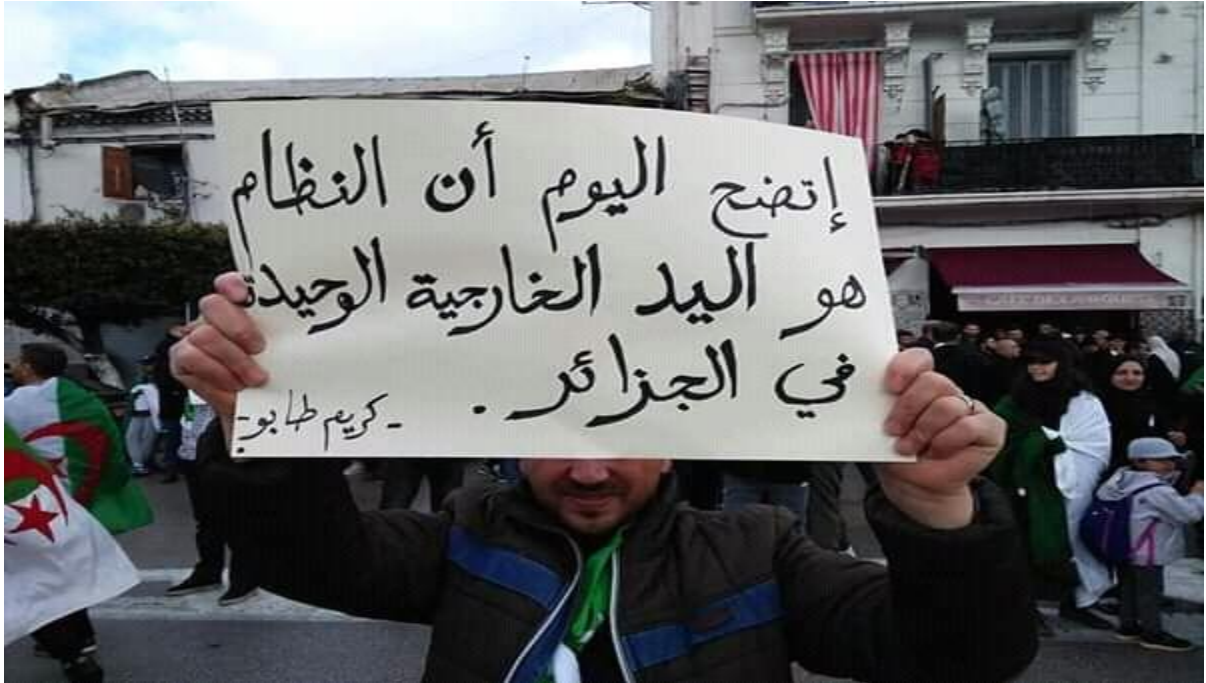 إتضح اليوم أن النظام
هو اليد الخارجية الوحيدة
في الجزائر .
- كريم طابو -